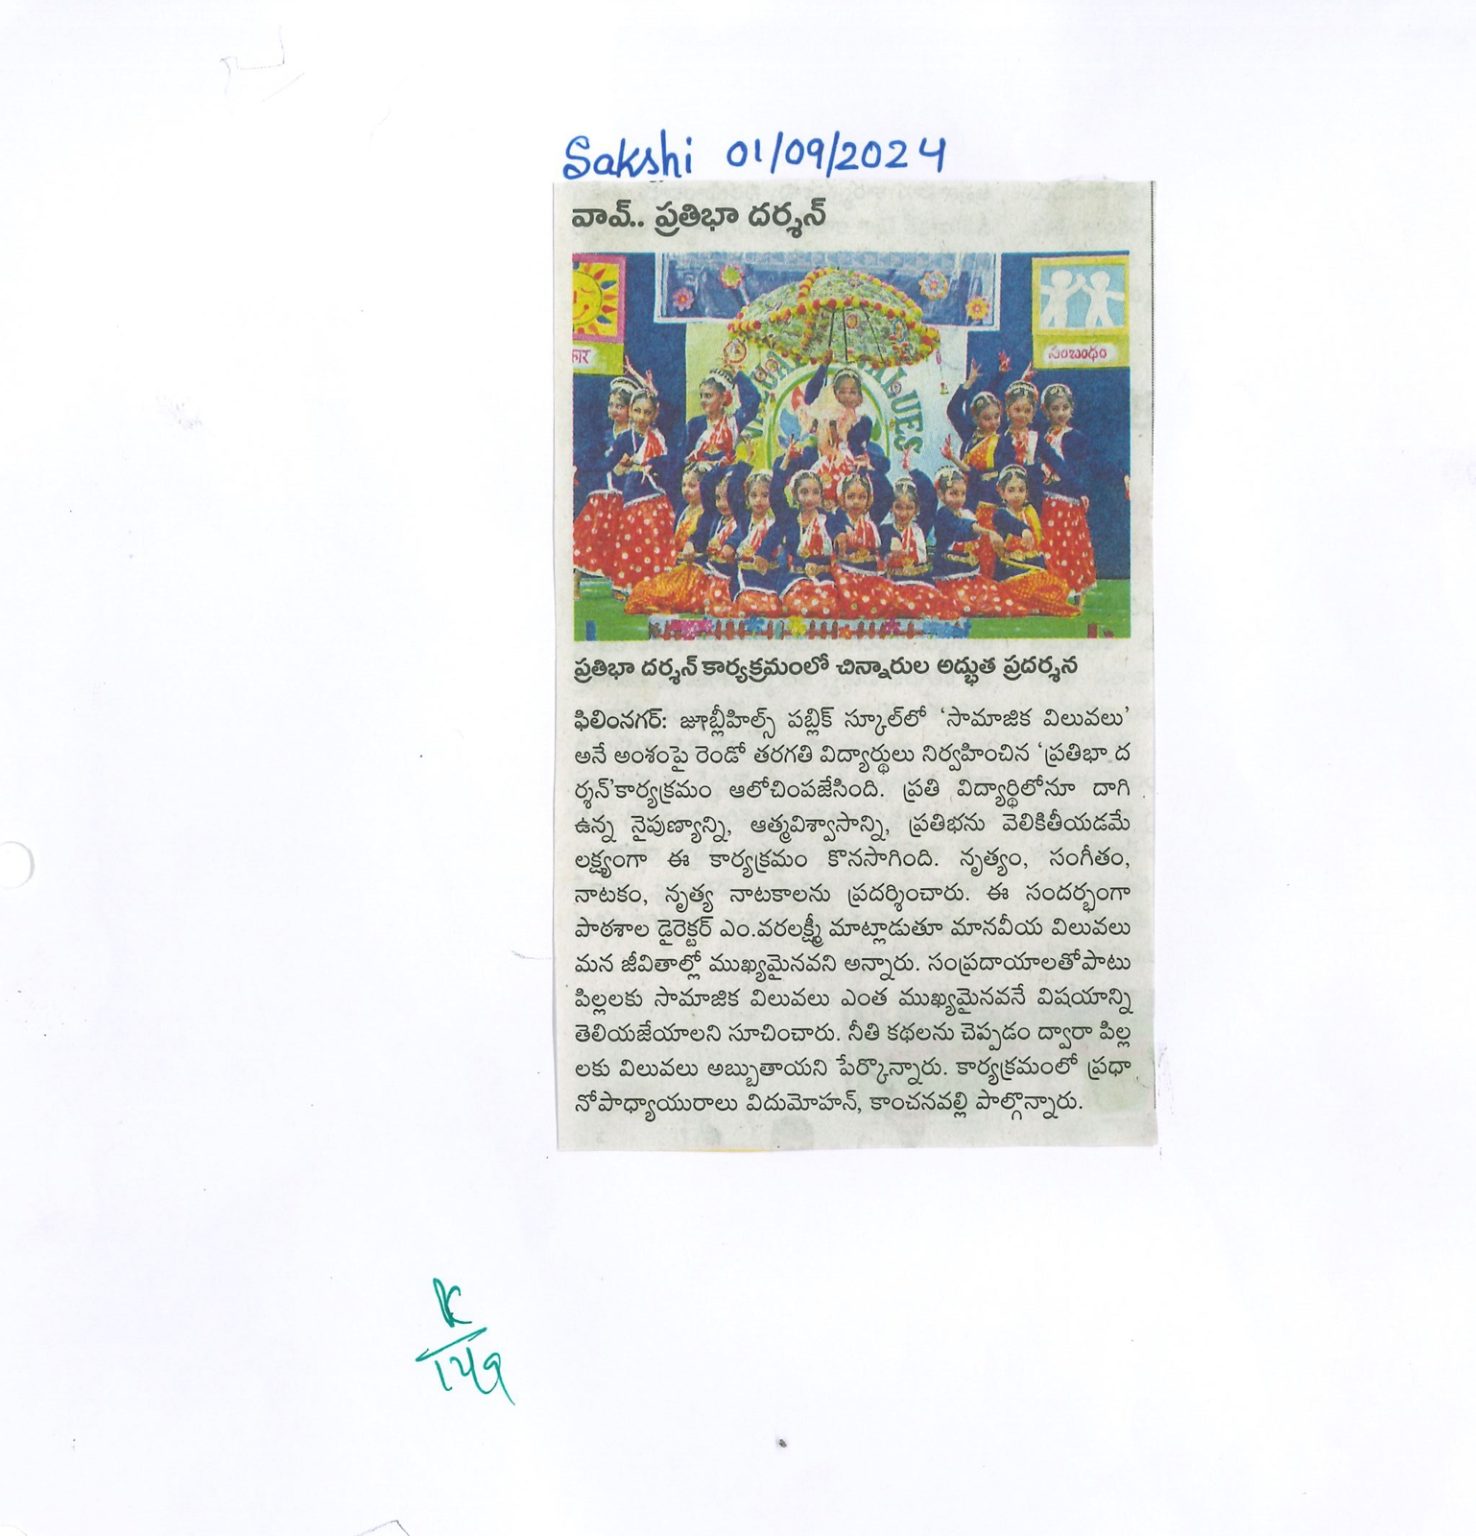 Sakshi 01/09/2024
వావ్.. ప్రతిభా దర్శన్
कार
సంబంధం
VALUES
ప్రతిభా దర్శన్ కార్యక్రమంలో చిన్నారుల అద్భుత ప్రదర్శన
ఫిలింనగర్: జూబ్లీహిల్స్ పబ్లిక్ స్కూల్‌లో ‘సామాజిక విలువలు’
అనే అంశంపై రెండో తరగతి విద్యార్థులు నిర్వహించిన ‘ప్రతిభా ద
ర్శన్’కార్యక్రమం ఆలోచింపజేసింది. ప్రతి విద్యార్థిలోనూ దాగి
ఉన్న నైపుణ్యాన్ని, ఆత్మవిశ్వాసాన్ని, ప్రతిభను వెలికితీయడమే
లక్ష్యంగా ఈ కార్యక్రమం కొనసాగింది. నృత్యం, సంగీతం,
నాటకం, నృత్య నాటకాలను ప్రదర్శించారు. ఈ సందర్భంగా
పాఠశాల డైరెక్టర్ ఎం.వరలక్ష్మీ మాట్లాడుతూ మానవీయ విలువలు
మన జీవితాల్లో ముఖ్యమైనవని అన్నారు. సంప్రదాయాలతోపాటు
పిల్లలకు సామాజిక విలువలు ఎంత ముఖ్యమైనవనే విషయాన్ని
తెలియజేయాలని సూచించారు. నీతి కథలను చెప్పడం ద్వారా పిల్ల
లకు విలువలు అబ్బుతాయని పేర్కొన్నారు. కార్యక్రమంలో ప్రధా
నోపాధ్యాయురాలు విదుమోహన్, కాంచనవల్లి పాల్గొన్నారు.